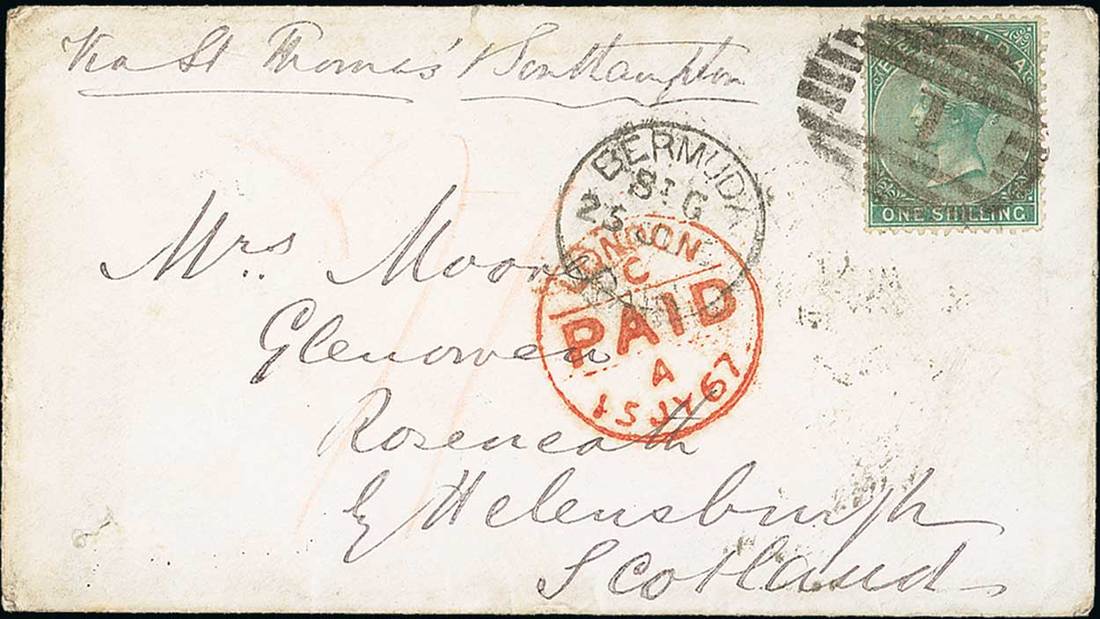 Via St Thomas' & Southampton
BERMUDA
1
ONE SHILLING
BERMUDA
St G
25
LONDON
C
PAID
A
15 JY 67
Mrs. Moore
Glenowen
Roseneath
by Helensburgh
Scotland